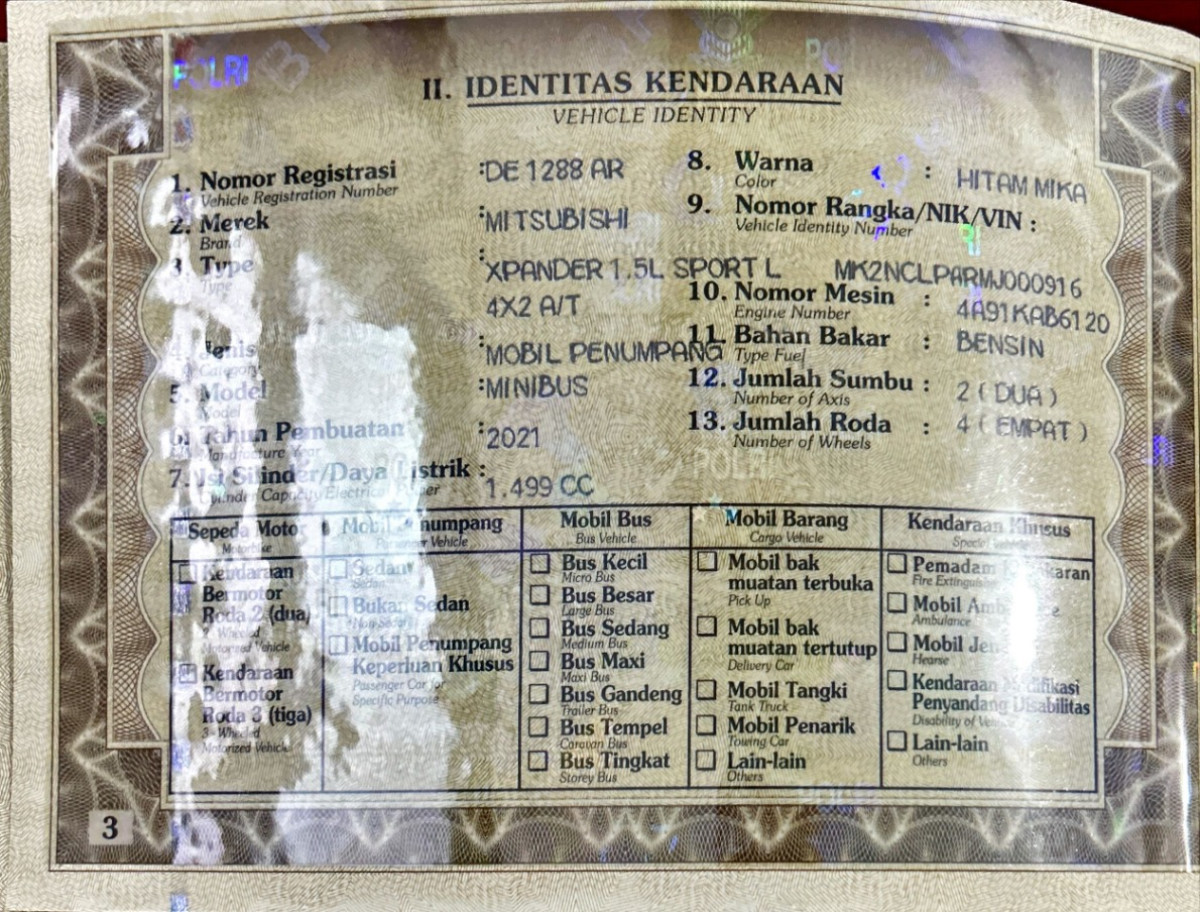 POLRI
II. IDENTITAS KENDARAAN
VEHICLE IDENTITY
1. Nomor Registrasi :DE 1288 AR
Vehicle Registration Number
2. Merek :MITSUBISHI
Brand
3. Type :XPANDER 1.5L SPORT L
Type 4X2 A/T
4. Jenis :MOBIL PENUMPANG
Category
5. Model :MINIBUS
Model
6. Tahun Pembuatan :2021
Manufacture Year
7. Isi Silinder/Daya Listrik : 1.499 CC
Cylinder Capacity/Electrical
8. Warna : HITAM MIKA
Color
9. Nomor Rangka/NIK/VIN :
Vehicle Identity Number
MK2NCLPARMJ000916
10. Nomor Mesin : 4A91KAB6120
Engine Number
11. Bahan Bakar : BENSIN
Type Fuel
12. Jumlah Sumbu : 2 ( DUA )
Number of Axis
13. Jumlah Roda : 4 ( EMPAT )
Number of Wheels
POLRI
Sepeda Motor
Motorbike
Kendaraan
Bermotor
Roda 2 (dua)
2 Wheeled
Motorized Vehicle
Kendaraan
Bermotor
Roda 3 (tiga)
3 Wheeled
Motorized Vehicle
Mobil Penumpang
Passenger Vehicle
Sedan
Sedan
Bukan Sedan
Non Sedan
Mobil Penumpang
Keperluan Khusus
Passenger Car for
Specific Purpose
Mobil Bus
Bus Vehicle
Bus Kecil
Micro Bus
Bus Besar
Large Bus
Bus Sedang
Medium Bus
Bus Maxi
Maxi Bus
Bus Gandeng
Trailer Bus
Bus Tempel
Caravan Bus
Bus Tingkat
Storey Bus
Mobil Barang
Cargo Vehicle
Mobil bak
muatan terbuka
Pick Up
Mobil bak
muatan tertutup
Delivery Car
Mobil Tangki
Tank Truck
Mobil Penarik
Towing Car
Lain-lain
Others
Kendaraan Khusus
Pemadam
Fire
Mobil
Ambulance
Mobil
Hearse
Kendaraan
Penyandang Disabilitas
Disability of
Lain-lain
Others
3